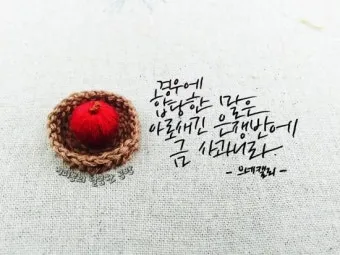 경우에
합당한 말은
아로새긴 은쟁반에
금 사과니라.
- 으데캘리 -